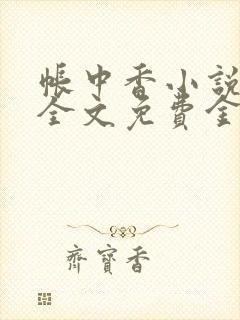 帳中香小說
全文免費全
齊寶香